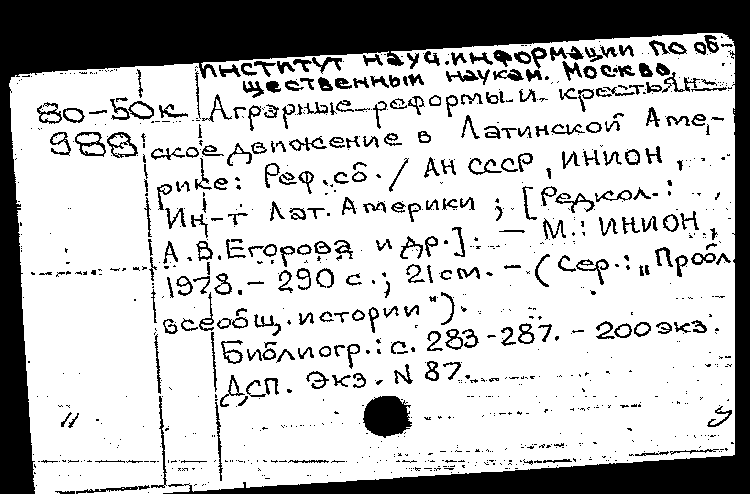 Институт науч. информации по об-
щественным наукам. Москва.
80-50к Аграрные реформы и крестьян-
988 ское движение в Латинской Аме-
рике: Реф. сб. / АН СССР, ИНИОН,
Ин-т Лат. Америки; [Редкол.:
А.В.Егорова и др.]. — М.: ИНИОН,
1978. — 290 с.; 21 см. — (Сер.: „Пробл.
всеобщ. истории").
Библиогр.: с. 283-287. — 200 экз.
ДСП. Экз. N 87.